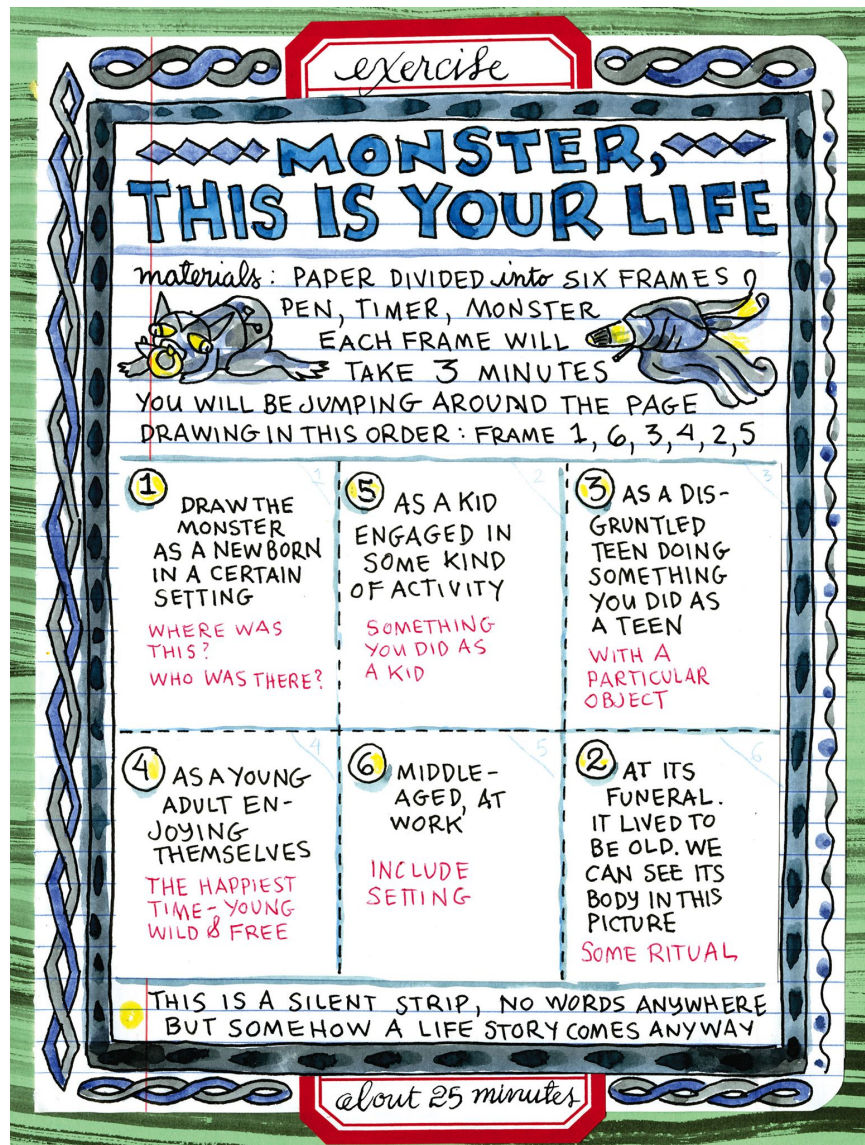 exercise
MONSTER,
THIS IS YOUR LIFE
materials: PAPER DIVIDED into SIX FRAMES
PEN, TIMER, MONSTER
EACH FRAME WILL
TAKE 3 MINUTES
YOU WILL BE JUMPING AROUND THE PAGE
DRAWING IN THIS ORDER: FRAME 1, 6, 3, 4, 2, 5
1
1
DRAW THE
MONSTER
AS A NEWBORN
IN A CERTAIN
SETTING
WHERE WAS
THIS?
WHO WAS THERE?
2
5 AS A KID
ENGAGED IN
SOME KIND
OF ACTIVITY
SOMETHING
YOU DID AS
A KID
3
3 AS A DIS-
GRUNTLED
TEEN DOING
SOMETHING
YOU DID AS
A TEEN
WITH A
PARTICULAR
OBJECT
4
4 AS A YOUNG
ADULT EN-
JOYING
THEMSELVES
THE HAPPIEST
TIME - YOUNG
WILD & FREE
5
6 MIDDLE-
AGED, AT
WORK
INCLUDE
SETTING
6
2 AT ITS
FUNERAL.
IT LIVED TO
BE OLD. WE
CAN SEE ITS
BODY IN THIS
PICTURE
SOME RITUAL
THIS IS A SILENT STRIP, NO WORDS ANYWHERE
BUT SOMEHOW A LIFE STORY COMES ANYWAY
about 25 minutes